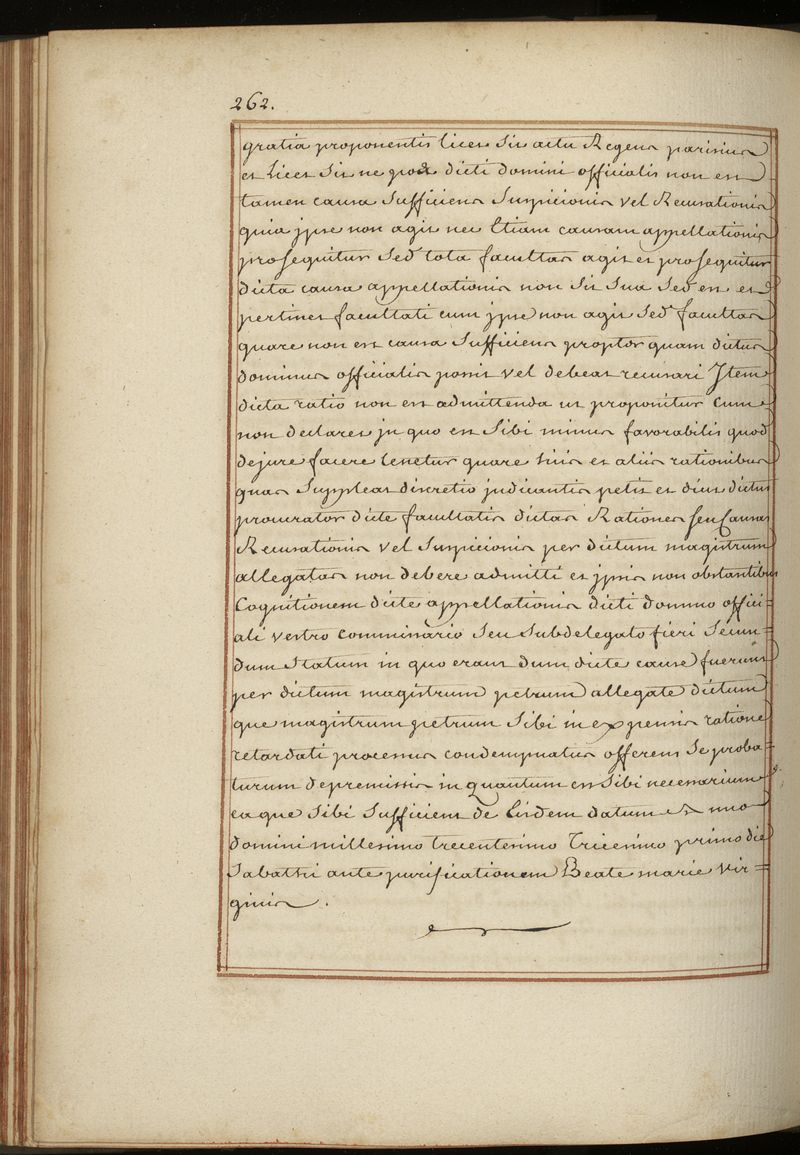 262.
gratia proponentis licet sit actu Regens parisius
et licet sit ne quod dicti domini officialis non est
tamen causa sufficiens suspicionis vel Recusationis
quia jpse non agit nec Etiam causam appellationis
prosequitur sed tota facultas agit et prosequitur
dicta causa appellationis non sit sua sed est et
pertinet facultati cum jpse non agit sed facultas
quare non est causa sufficiens propter quam dictus
dominus officialis possit vel debeat recusari Jtem
dicta ratio non est admittenda ut proponitur cum
non declaret jn quo est sibi minus favorabilis quod
dejure facere tenetur quare hiis et aliis rationibus
quas suppleat discretio judicantis petit et dicit dictus
procurator dicte facultatis dictas Rationes seu Causas
Recusationis vel suspicionis per dictum magistrum
allegatas non debere admitti et jpsis non obstantibus
Cognitionem dicte appellationis dicti domino offici=
ali vestro commissario seu subdelegato fieri secun=
dum statum in quo erant dum dicte cause fuerunt
per dictum magistrum petrum allegate dictum
que magistrum petrum sibi in expensis ratione
retardati processus condempnatus offerens se proba=
turum de premissis in quantum est sibi necessarium
ea que sibi sufficient de Eisdem datum anno
domini millesimo trecentesimo Tricesimo primo die
Sabathi ante purificationem Beate marie vir=
ginis.